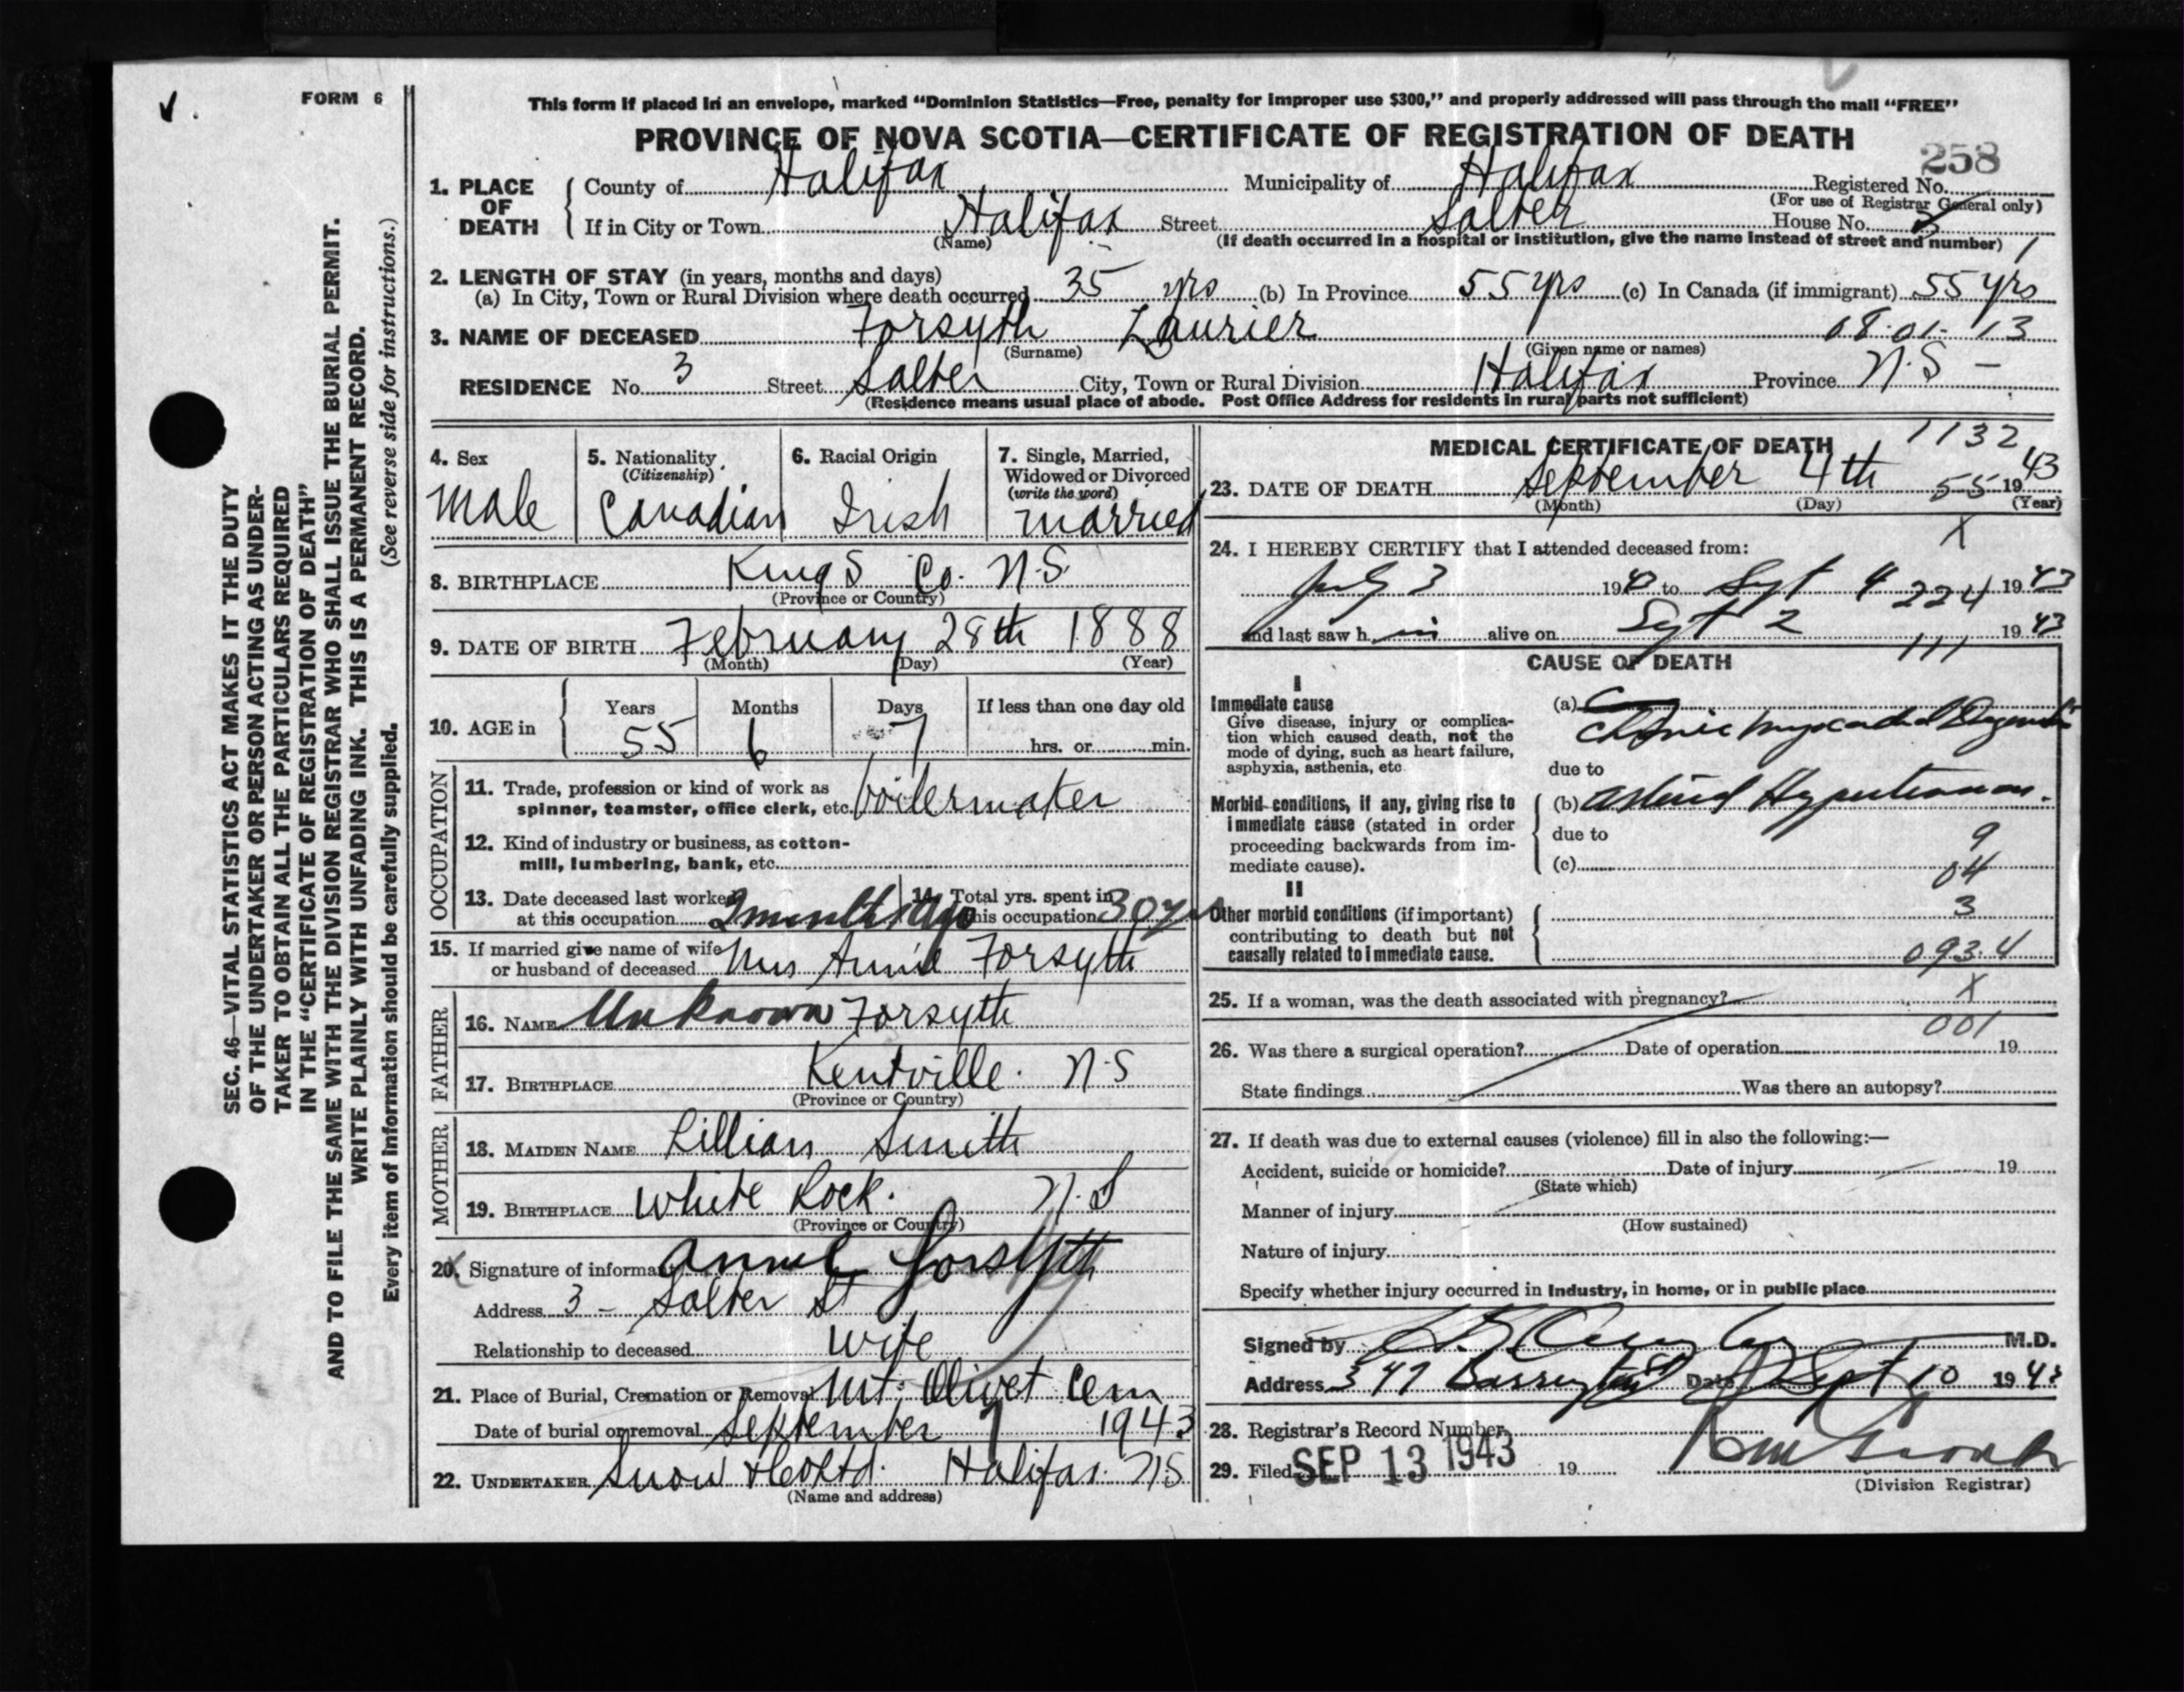 FORM 6
This form if placed in an envelope, marked “Dominion Statistics—Free, penalty for improper use $300,” and properly addressed will pass through the mail “FREE”
PROVINCE OF NOVA SCOTIA—CERTIFICATE OF REGISTRATION OF DEATH
258
1. PLACE OF DEATH
County of Halifax Municipality of Halifax Registered No.
(For use of Registrar General only)
If in City or Town Halifax Street Salter House No. 3
(Name) (If death occurred in a hospital or institution, give the name instead of street and number) 1
2. LENGTH OF STAY (in years, months and days)
(a) In City, Town or Rural Division where death occurred 35 yrs (b) In Province 55 yrs (c) In Canada (if immigrant) 55 yrs
3. NAME OF DECEASED Forsyth Laurier 08-01-13
(Surname) (Given name or names)
RESIDENCE No. 3 Street Salter City, Town or Rural Division Halifax Province N.S –
(Residence means usual place of abode. Post Office Address for residents in rural parts not sufficient)
SEC. 46—VITAL STATISTICS ACT MAKES IT THE DUTY
OF THE UNDERTAKER OR PERSON ACTING AS UNDER-
TAKER TO OBTAIN ALL THE PARTICULARS REQUIRED
IN THE “CERTIFICATE OF REGISTRATION OF DEATH”
AND TO FILE THE SAME WITH THE DIVISION REGISTRAR WHO SHALL ISSUE THE BURIAL PERMIT.
WRITE PLAINLY WITH UNFADING INK. THIS IS A PERMANENT RECORD.
Every item of information should be carefully supplied. (See reverse side for instructions.)
4. Sex
Male
5. Nationality
(Citizenship)
Canadian
6. Racial Origin
Irish
7. Single, Married,
Widowed or Divorced
(write the word)
Married
8. BIRTHPLACE Kings Co. N.S.
(Province or Country)
9. DATE OF BIRTH February 28th 1888
(Month) (Day) (Year)
10. AGE in
Years Months Days If less than one day old
55 6 7 hrs. or min.
OCCUPATION
11. Trade, profession or kind of work as
spinner, teamster, office clerk, etc. boilermaker
12. Kind of industry or business, as cotton-
mill, lumbering, bank, etc.
13. Date deceased last worked
at this occupation 2 months ago
14. Total yrs. spent in
this occupation 30 yrs
15. If married give name of wife
or husband of deceased Mrs Annie Forsyth
FATHER
16. NAME Unknown Forsyth
17. BIRTHPLACE Kentville. N.S
(Province or Country)
MOTHER
18. MAIDEN NAME Lillian Smith
19. BIRTHPLACE White Rock. N.S
(Province or Country)
20. Signature of informant Annie Forsyth
Address 3 – Salter St
Relationship to deceased wife
21. Place of Burial, Cremation or Removal Mt. Olivet Cem
Date of burial or removal September 7 1943
22. UNDERTAKER Snow & Co Ltd. Halifax N.S
(Name and address)
MEDICAL CERTIFICATE OF DEATH 1132
23. DATE OF DEATH September 4th 55 1943
(Month) (Day) (Year)
X
24. I HEREBY CERTIFY that I attended deceased from:
July 3 19 to Sept 4 224 1943
and last saw h im alive on Sept 2 1943
111
CAUSE OF DEATH
I
Immediate cause
Give disease, injury or complica-
tion which caused death, not the
mode of dying, such as heart failure,
asphyxia, asthenia, etc.
(a) Chronic Myocardial
due to
Morbid conditions, if any, giving rise to
immediate cause (stated in order
proceeding backwards from im-
mediate cause).
(b) Hypertension.
due to
9
(c) 04
II
Other morbid conditions (if important)
contributing to death but not
causally related to immediate cause.
3
093.4
25. If a woman, was the death associated with pregnancy? X
001
26. Was there a surgical operation? Date of operation 19
State findings Was there an autopsy?
27. If death was due to external causes (violence) fill in also the following:—
Accident, suicide or homicide? Date of injury 19
(State which)
Manner of injury
(How sustained)
Nature of injury
Specify whether injury occurred in Industry, in home, or in public place
Signed by M.D.
Address 347 Barrington St Date Sept 10 1943
28. Registrar's Record Number
29. Filed SEP 13 1943 19
(Division Registrar)